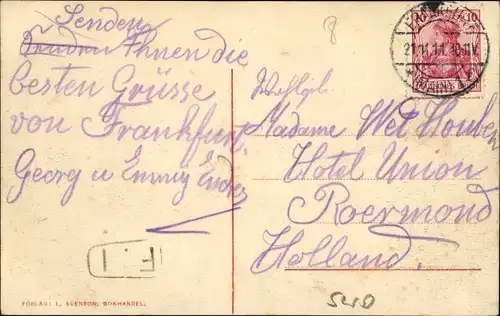 Senden
Senden Ihnen die
besten Grüsse
von Frankfurt
Georg u Emmy
Wohlgb.
Madame Wel Houben
Hotel Union
Roermond
Holland.
F. I
FÖRLAG: L. SVENSONS BOKHANDEL.
540
8
(MAIN)